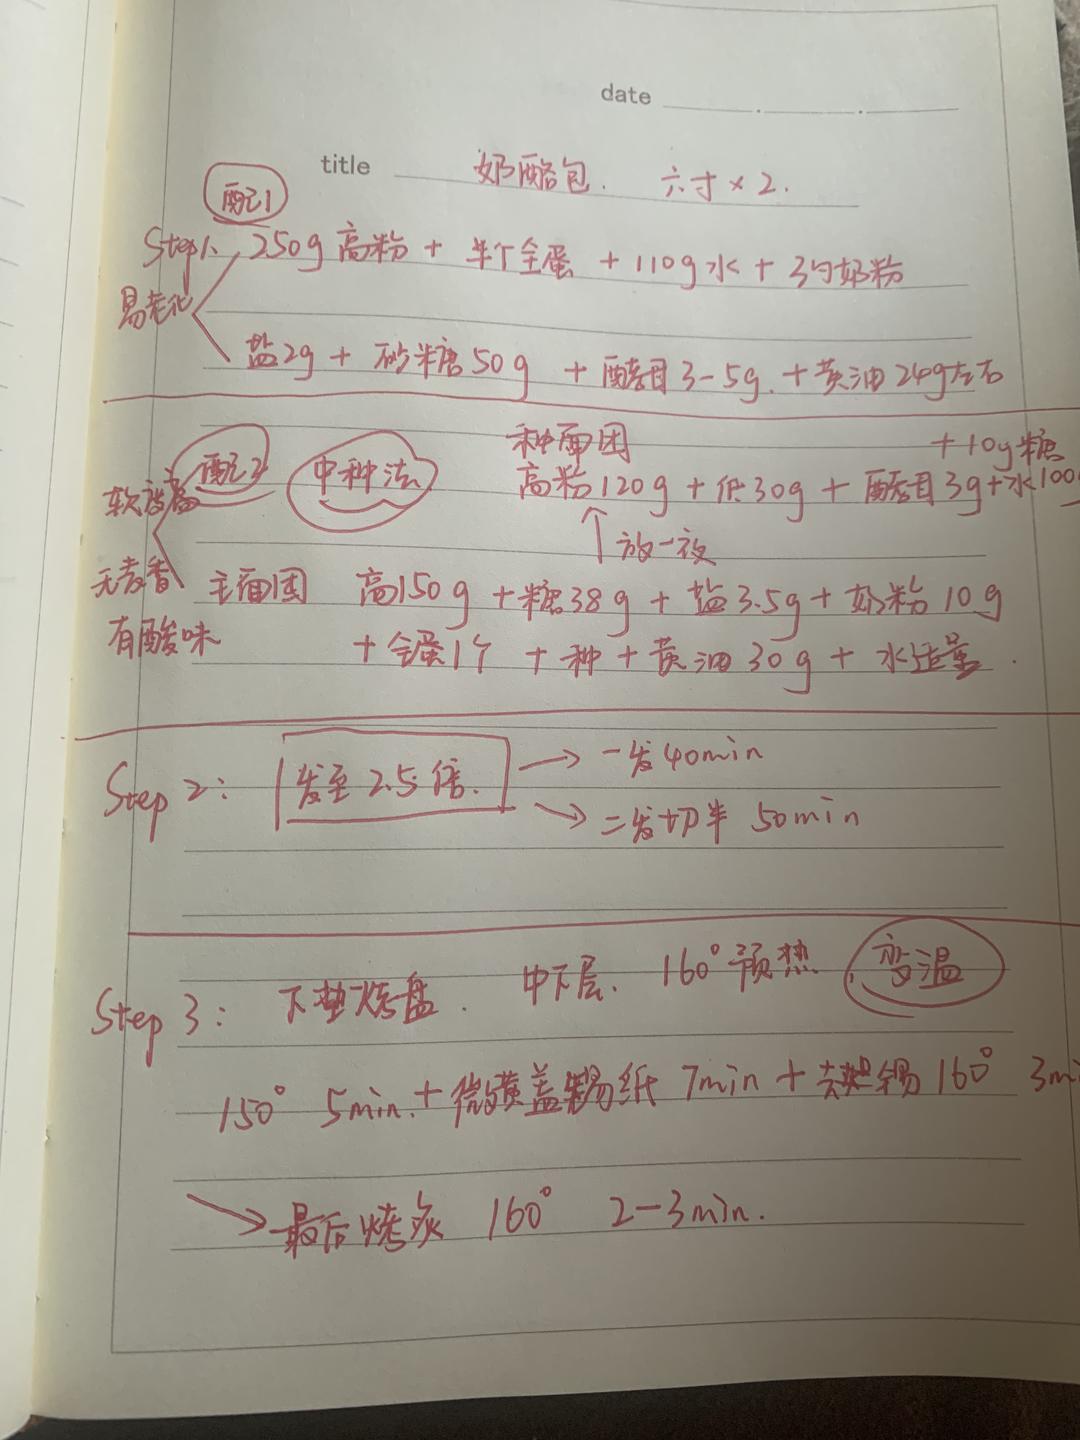 date
title 奶酪包. 六寸×2.
配1
Step1. 250g高粉 + 半个全蛋 + 110g水 + 3勺奶粉
易老化
盐2g + 砂糖50g + 酵母3-5g. + 黄油24g左右
种面团 +10g糖
配2 中种法 高粉120g + 低30g + 酵母3g+水100
软度高
↑放一夜
无麦香 主面团 高150g +糖38g + 盐3.5g + 奶粉10g
有酸味 +全蛋1个 + 种 + 黄油30g + 水适量.
Step 2: 发至2.5倍. → 一发40min
→ 二发切半 50min
Step 3: 下垫烤盘. 中下层. 160°预热 变温
150° 5min.+微黄盖锡纸 7min + 去锡 160° 3mi
→最后烤灰 160° 2-3min.